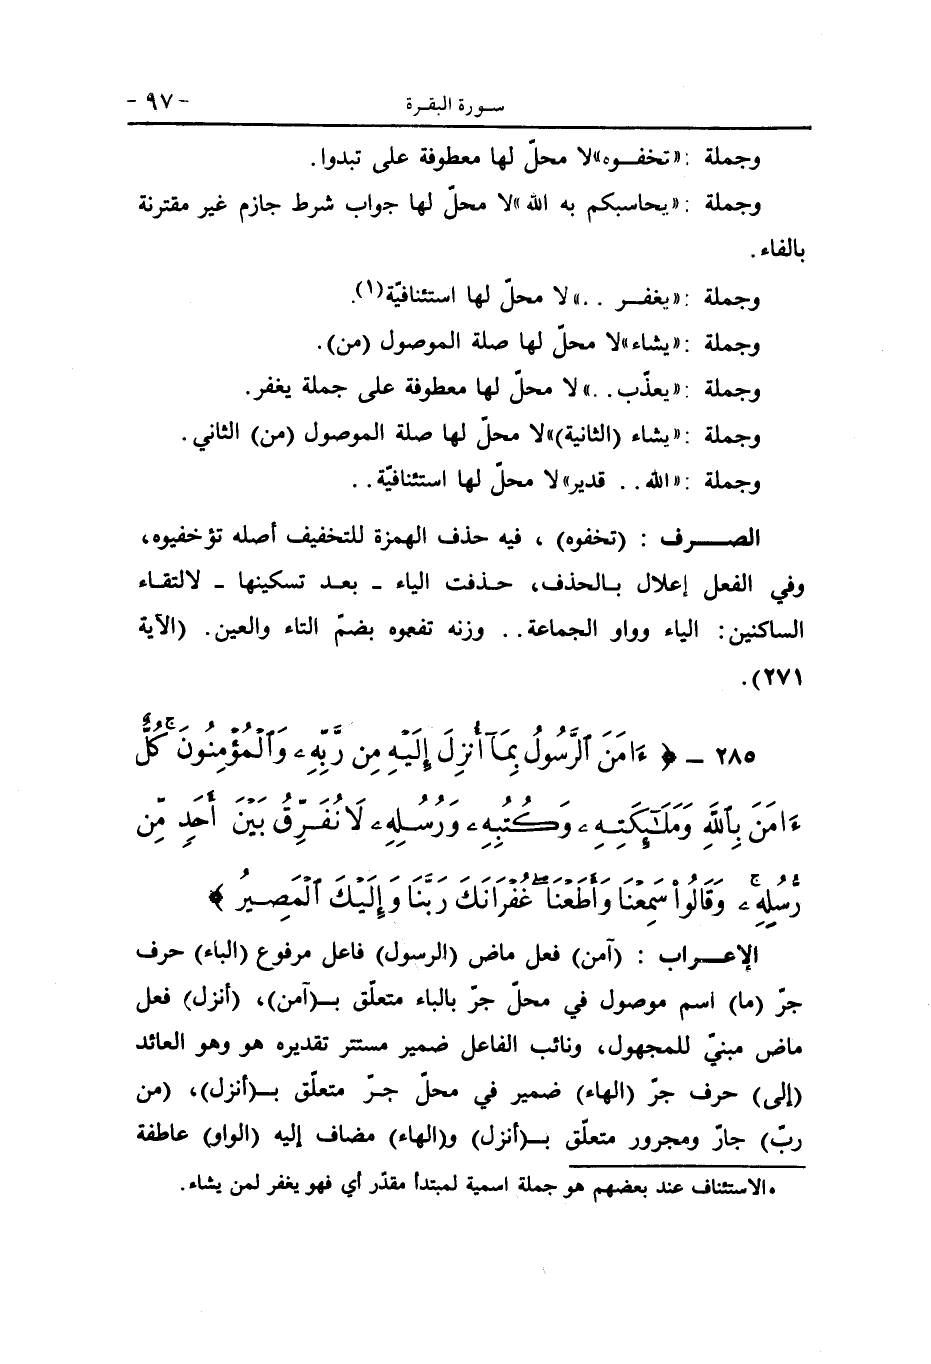 سورة البقرة - ٩٧ -
وجملة : «تخفـوه» لا محلّ لها معطوفة على تبدوا.
وجملة : «يحاسبكم به الله» لا محلّ لها جواب شرط جازم غير مقترنة
بالفاء.
وجملة : «يغفـر . .» لا محلّ لها استئنافيّة(١).
وجملة : «يشاء» لا محلّ لها صلة الموصول (من).
وجملة : «يعذّب. .» لا محلّ لها معطوفة على جملة يغفر.
وجملة : «يشاء (الثانية)» لا محلّ لها صلة الموصول (من) الثاني.
وجملة : «الله. . قدير» لا محلّ لها استئنافيّة. .
الصـرف : (تخفوه) ، فيه حذف الهمزة للتخفيف أصله تؤخفيوه،
وفي الفعل إعلال بـالحذف، حـذفت الياء ـ بعـد تسكينها ـ لالتقـاء
الساكنين: الياء وواو الجماعة. . وزنه تفعوه بضمّ التاء والعين. (الآية
٢٧١).
٢٨٥ ـ ﴿ ءَامَنَ ٱلرَّسُولُ بِمَآ أُنزِلَ إِلَيْهِ مِن رَّبِّهِۦ وَٱلْمُؤْمِنُونَ ۚ كُلٌّ
ءَامَنَ بِٱللَّهِ وَمَلَـٰٓئِكَتِهِۦ وَكُتُبِهِۦ وَرُسُلِهِۦ لَا نُفَرِّقُ بَيْنَ أَحَدٍ مِّن
رُّسُلِهِۦ ۚ وَقَالُوا۟ سَمِعْنَا وَأَطَعْنَا ۖ غُفْرَانَكَ رَبَّنَا وَإِلَيْكَ ٱلْمَصِيرُ ﴾
الإعـراب : (آمن) فعل ماض (الرسول) فاعل مرفوع (الباء) حرف
جرّ (ما) اسم موصول في محلّ جرّ بالباء متعلّق بـ(آمن)، (أنزل) فعل
ماض مبنيّ للمجهول، ونائب الفاعل ضمير مستتر تقديره هو وهو العائد
(إلى) حرف جرّ (الهاء) ضمير في محلّ جـرّ متعلّق بـ(أنزل)، (من
ربّ) جارّ ومجرور متعلّق بـ(أنزل) و(الهاء) مضاف إليه (الواو) عاطفة
• الاستئناف عند بعضهم هو جملة اسمية لمبتدأ مقدّر أي فهو يغفر لمن يشاء.